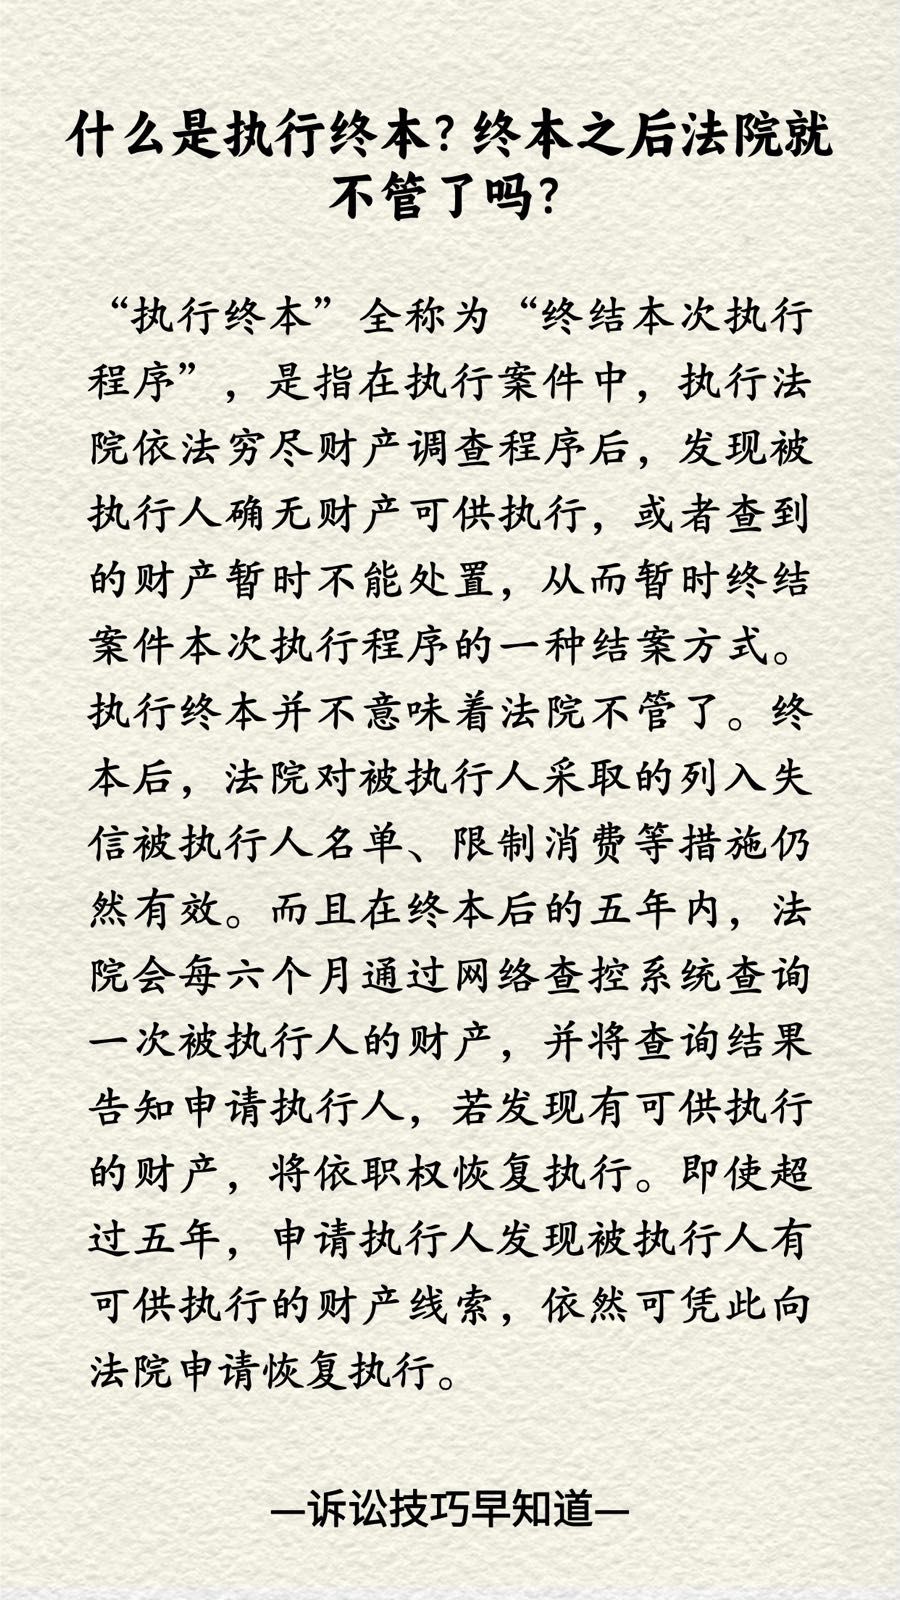 什么是执行终本?终本之后法院就
不管了吗?
“执行终本”全称为“终结本次执行
程序”，是指在执行案件中，执行法
院依法穷尽财产调查程序后，发现被
执行人确无财产可供执行，或者查到
的财产暂时不能处置，从而暂时终结
案件本次执行程序的一种结案方式。
执行终本并不意味着法院不管了。终
本后，法院对被执行人采取的列入失
信被执行人名单、限制消费等措施仍
然有效。而且在终本后的五年内，法
院会每六个月通过网络查控系统查询
一次被执行人的财产，并将查询结果
告知申请执行人，若发现有可供执行
的财产，将依职权恢复执行。即使超
过五年，申请执行人发现被执行人有
可供执行的财产线索，依然可凭此向
法院申请恢复执行。
—诉讼技巧早知道—